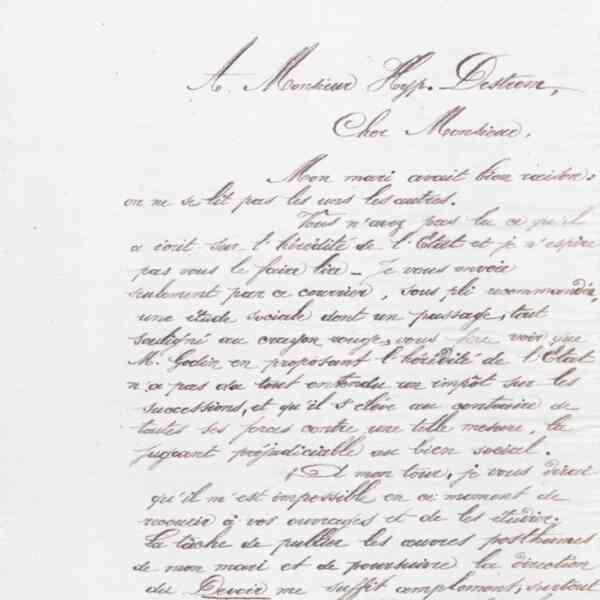 A Monsieur Hyp. Destrem,
Cher Monsieur,
Mon mari avait bien raison:
on ne se lit pas les uns les autres.
Vous n'avez pas lu ce qu'il
a écrit sur l'hérédité de l'Etat et je n'espère
pas vous le faire lire - Je vous envoie
seulement par ce courrier, sous pli recommandé,
une étude sociale dont un passage, tout
souligné au crayon rouge, vous fera voir que
M. Godin en proposant l'hérédité de l'Etat
n'a pas du tout entendu un impôt sur les
successions, et qu'il s'élève au contraire de
toutes ses forces contre une telle mesure, la
jugeant préjudiciable au bien social.
A mon tour, je vous dirai
qu'il m'est impossible en ce moment de
recourir à vos ouvrages et de les étudier.
La tâche de publier les œuvres posthumes
de mon mari et de poursuivre la direction
du Devoir me suffit amplement, surtout